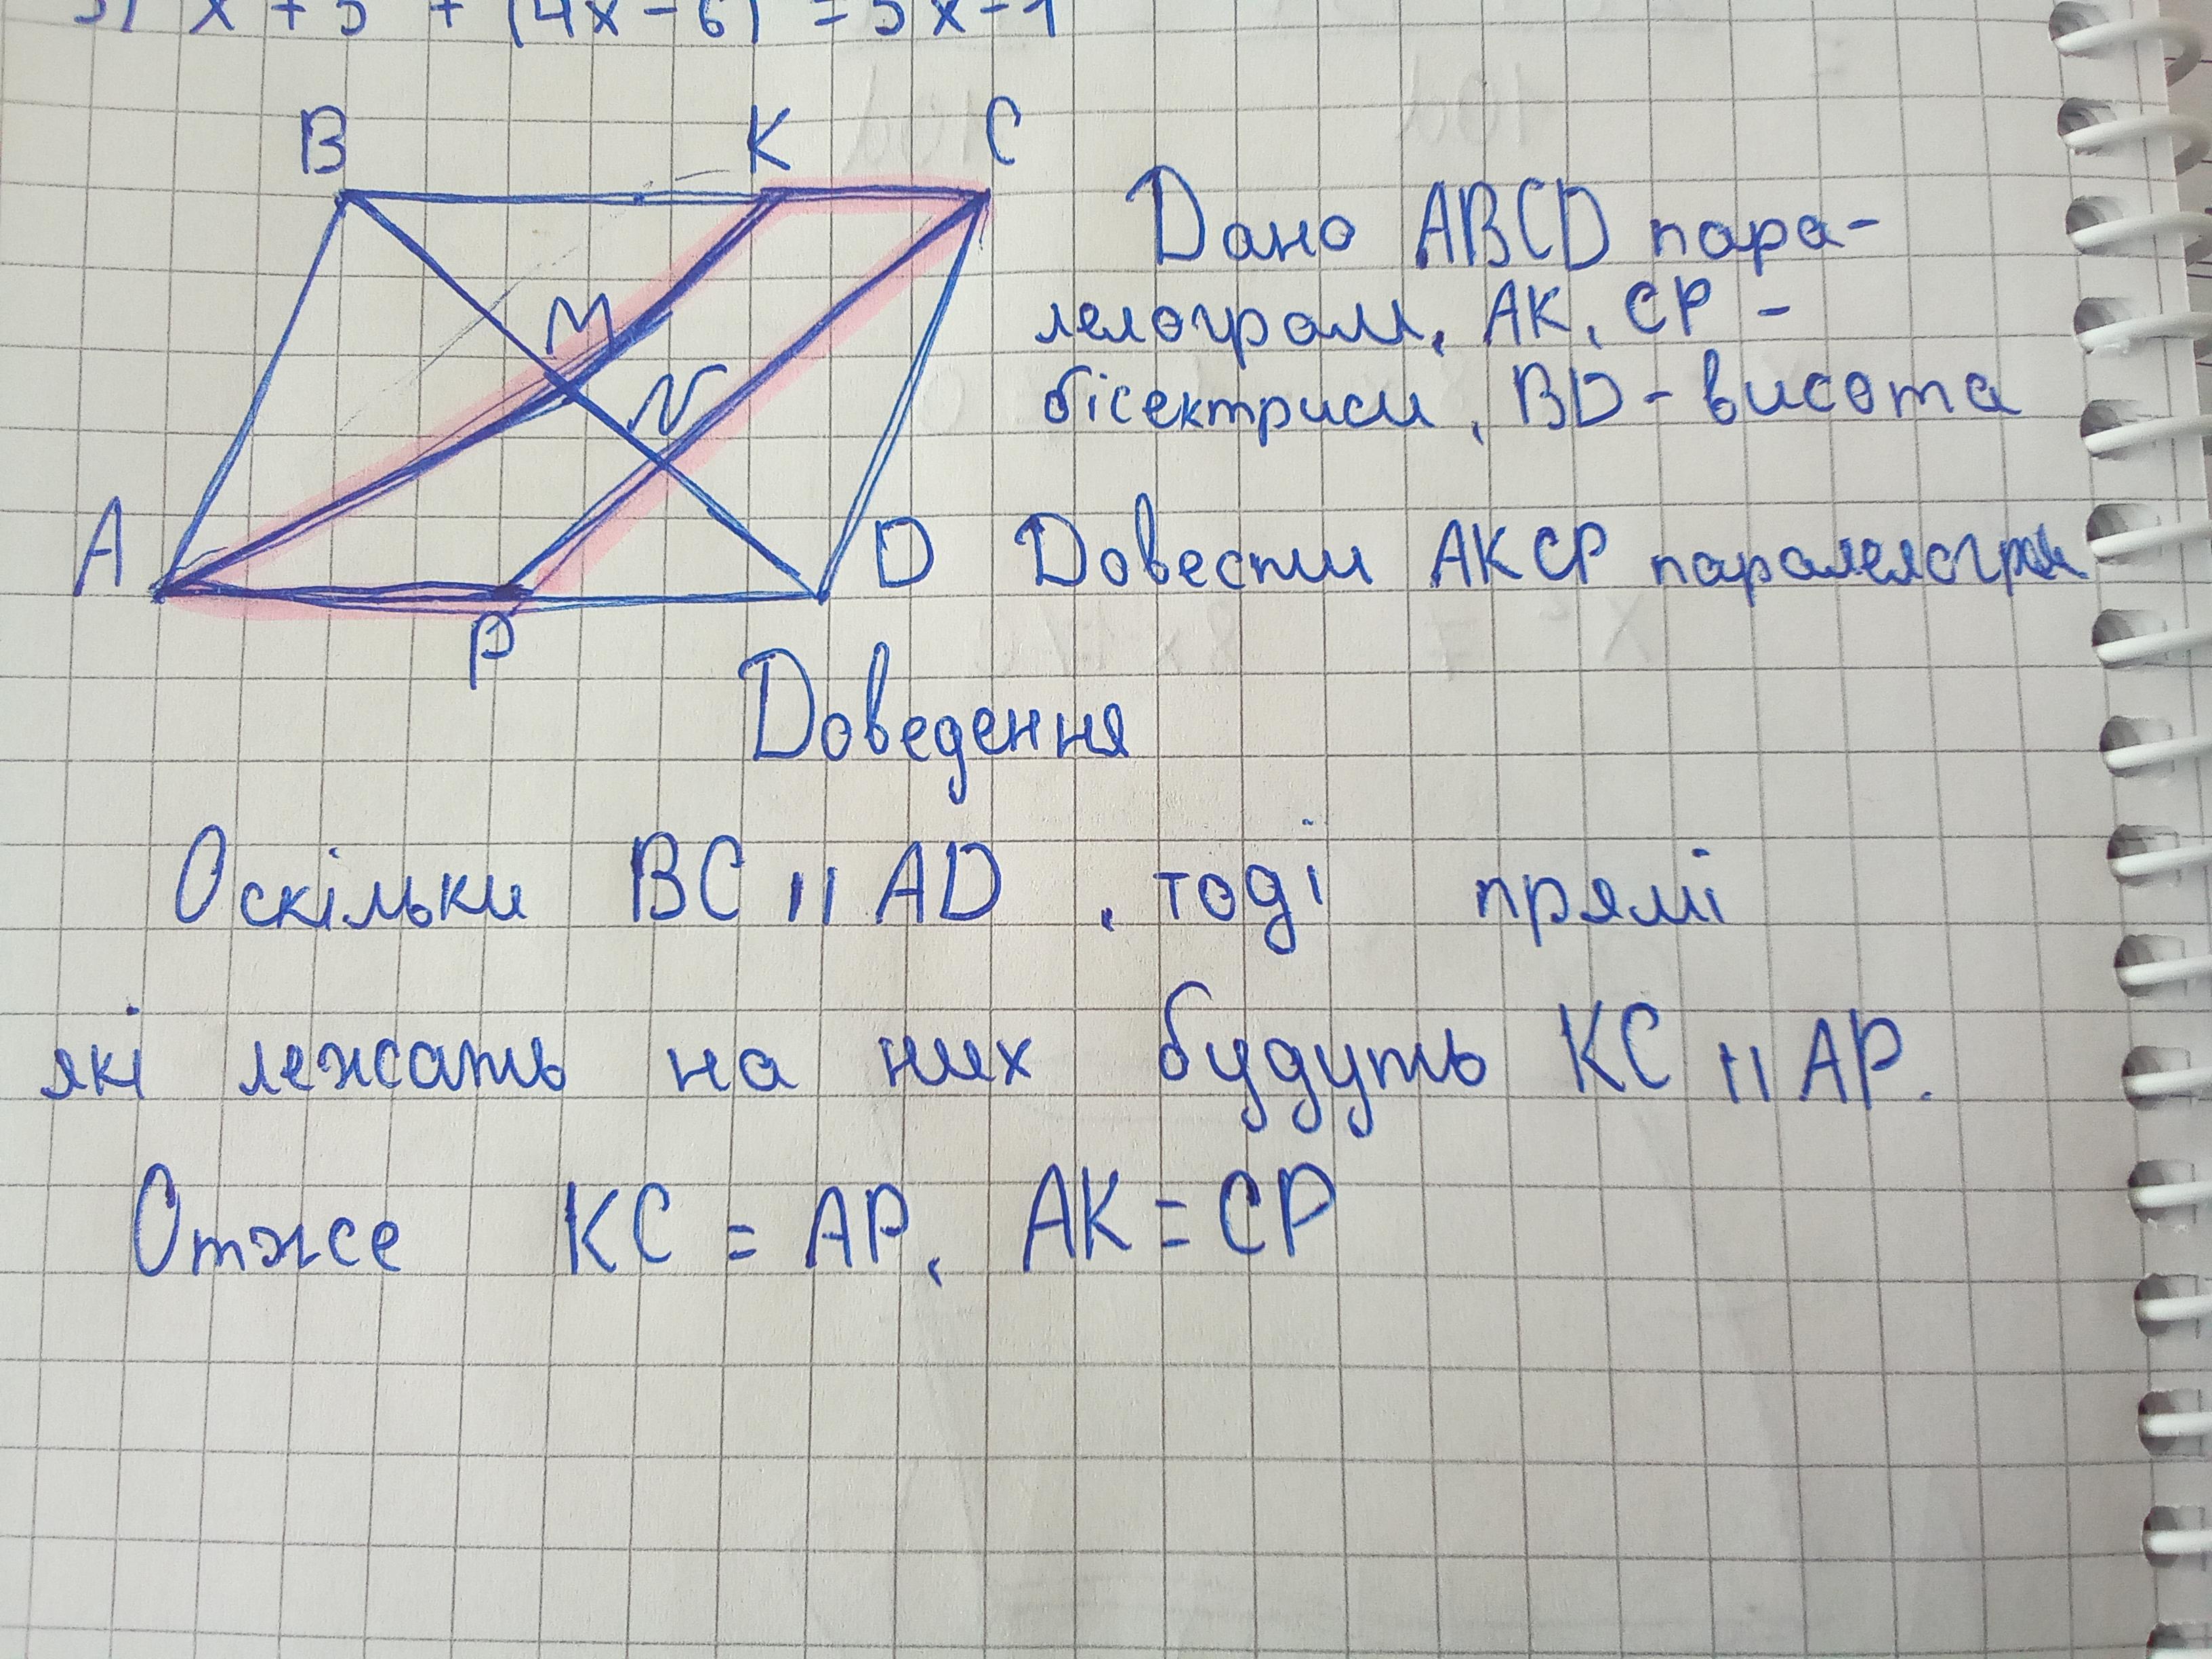 x + 5 + (4x - 6) = 5x - 1
B K C
M
N
A D
P
Дано ABCD пара-
лелограм, AK, CP -
бісектриси, BD - висота
Довести AKCP паралелограм
Доведення
Оскільки BC || AD , тоді прямі
які лежать на них будуть KC || AP.
Отже KC = AP, AK = CP